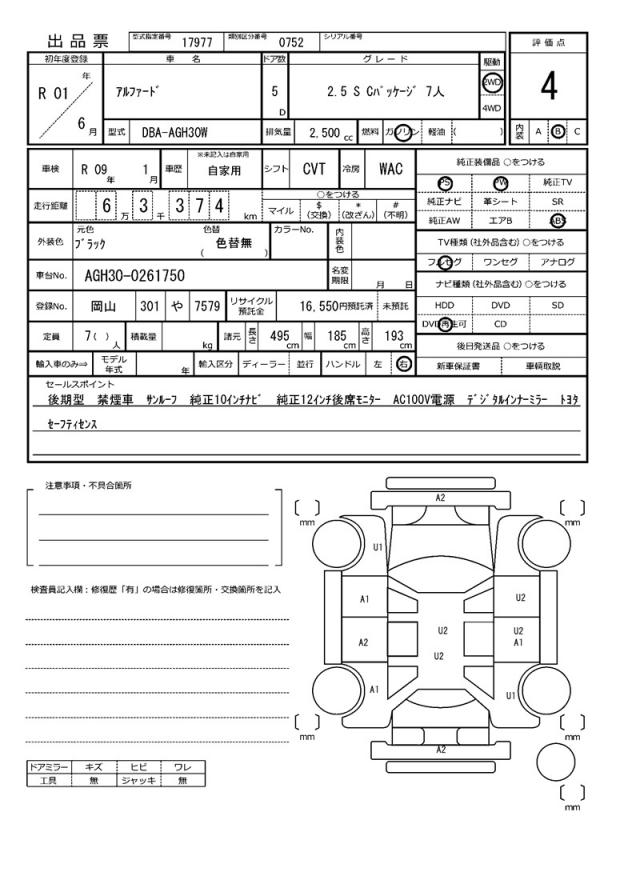 出品票 型式指定番号 17977 類別区分番号 0752 シリアル番号
評価点
4
内装 A B C
初年度登録 車名 ドア数 グレード 駆動
R 01 年 6 月 アルファード 5 D 2.5 S Cパッケージ 7人 2WD 4WD
型式 DBA-AGH30W 排気量 2,500 cc 燃料 ガソリン 軽油 ( )
車検 R 09 年 1 月 車歴 ※未記入は自家用 自家用 シフト CVT 冷房 WAC
走行距離 6 万 3 千 3 7 4 km ○をつける
マイル $ (交換) * (改ざん) # (不明)
外装色 元色 ブラック 色替 ( 色替無 ) カラーNo. 内装色
車台No. AGH30-0261750 名変期限 月 日
登録No. 岡山 301 や 7579 リサイクル預託金 16,550円預託済 未預託
定員 7( )人 積載量 kg 諸元 長さ 495 cm 幅 185 cm 高さ 193 cm
輸入車のみ⇒ モデル年式 年 輸入区分 ディーラー 並行 ハンドル 左 右
純正装備品 ○をつける
PS PW 純正TV
純正ナビ 革シート SR
純正AW エアB ABS
TV種類(社外品含む)○をつける
フルセグ ワンセグ アナログ
ナビ種類(社外品含む)○をつける
HDD DVD SD
DVD再生可 CD
後日発送品 ○をつける
新車保証書 車輌取説
セールスポイント
後期型 禁煙車 サンルーフ 純正10インチナビ 純正12インチ後席モニター AC100V電源 デジタルインナーミラー トヨタ
セーフティセンス
注意事項・不具合箇所
検査員記入欄:修復歴「有」の場合は修復箇所・交換箇所を記入
ドアミラー キズ ヒビ ワレ
工具 無 ジャッキ 無
A2
mm mm
U1
A1 U2
U2 U2
A2 A1
U2
A1 U1
mm mm
A2
mm